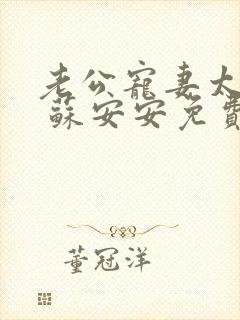 老公寵妻太
蘇安安免費
董冠洋